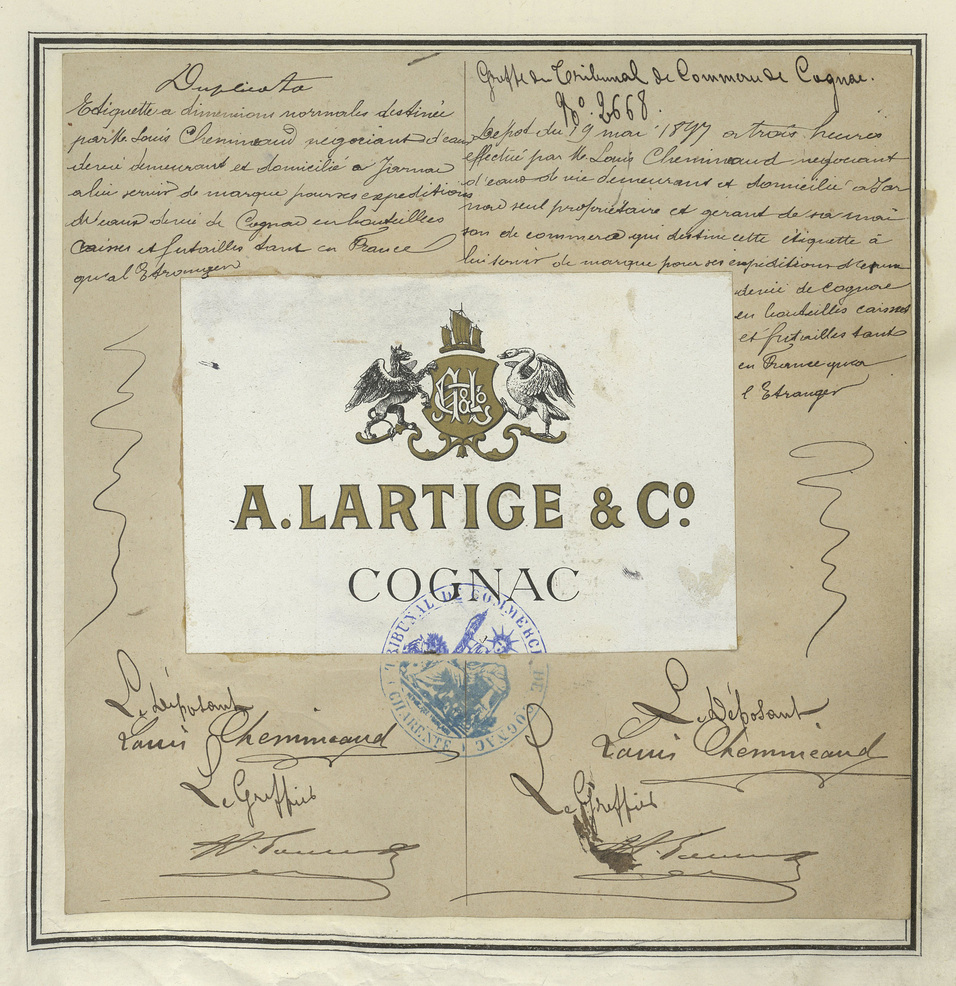 Duplicata
Etiquette a dimensions normales destinée
par Mr Louis Chemineaud négociant d'eau
devie demeurant et domicilié a Jarnac
a lui servir de marque pour ses expeditions
de eaux devie de Cognac en bouteilles
caisses et futailles tant en France
qu'a l'Etranger
Greffe du Tribunal de Commerce de Cognac.
No. 2668.
Dépot du 19 mai 1897 a trois heures
effectué par Mr Louis Chemineaud negociant
d'eaux de vie demeurant et domicilié a Jar
nac seul propriétaire et gerant de sa mai
son de commerce qui destine cette étiquette à
lui servir de marque pour ses expéditions d'eaux
devie de Cognac
en bouteilles caisses
et futailles tant
en France qu'a
l'Etranger
G&Lo
A. LARTIGE & Co.
COGNAC
TRIBUNAL DE COMMERCE DE COGNAC
CHARENTE
Le déposant
Louis Chemineaud
Le Greffier
Le Déposant
Louis Chemineaud
Le Greffier